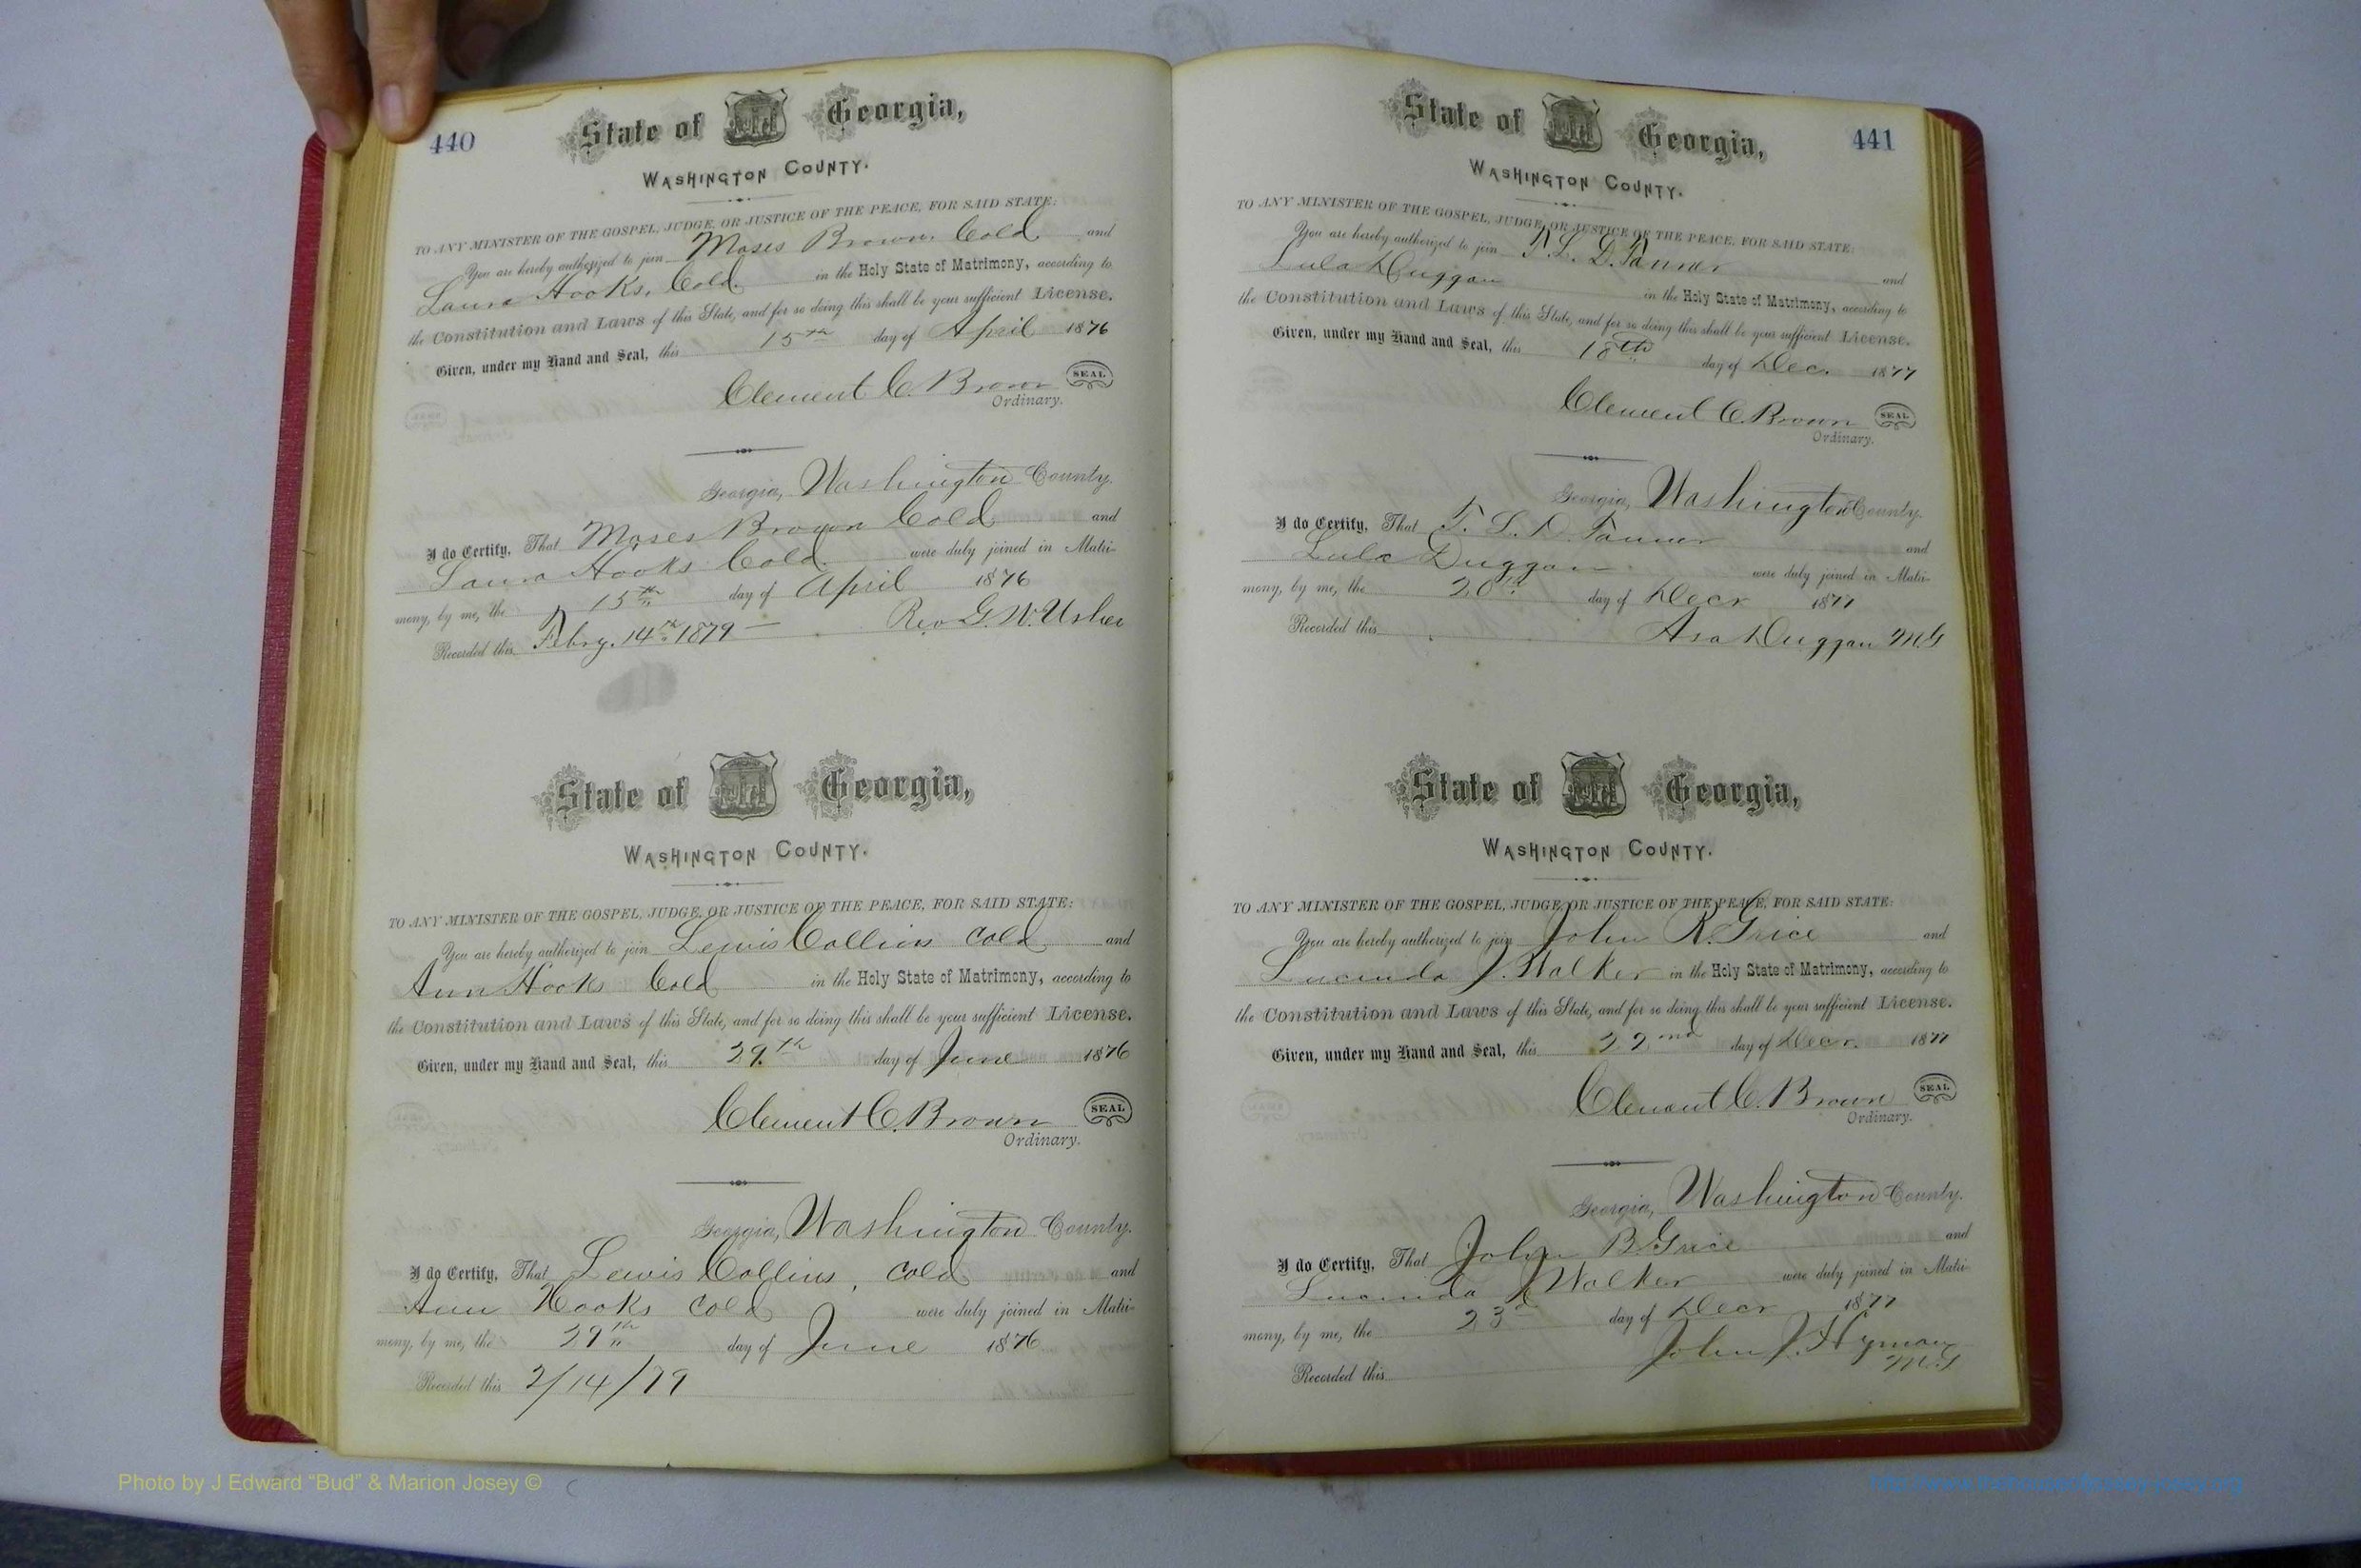 440
State of Georgia,
WASHINGTON COUNTY.
TO ANY MINISTER OF THE GOSPEL, JUDGE, OR JUSTICE OF THE PEACE, FOR SAID STATE:
You are hereby authorized to join Moses Brown. Cold and
Laura Hooks. Cold. in the Holy State of Matrimony, according to
the Constitution and Laws of this State, and for so doing this shall be your sufficient License.
Given, under my Hand and Seal, this 15th day of April 1876
Clement C. Brown SEAL
Ordinary.
Georgia, Washington County.
I do Certify, That Moses Brown Cold and
Laura Hooks Cold. were duly joined in Matri-
mony, by me, the 15th day of April 1876
Rev G. W. Usher
Recorded this Febry. 14th 1879
State of Georgia,
WASHINGTON COUNTY.
TO ANY MINISTER OF THE GOSPEL, JUDGE, OR JUSTICE OF THE PEACE, FOR SAID STATE:
You are hereby authorized to join Lewis Collins cold and
Ann Hooks Cold in the Holy State of Matrimony, according to
the Constitution and Laws of this State, and for so doing this shall be your sufficient License.
Given, under my Hand and Seal, this 29.th day of June 1876
Clement C. Brown SEAL
Ordinary.
Georgia, Washington County.
I do Certify, That Lewis Collins, cold and
Ann Hooks cold were duly joined in Matri-
mony, by me, the 29th day of June 1876
Recorded this 2/14/79
441
State of Georgia,
WASHINGTON COUNTY.
TO ANY MINISTER OF THE GOSPEL, JUDGE, OR JUSTICE OF THE PEACE, FOR SAID STATE:
You are hereby authorized to join T. L. D. Tanner
Lula Duggan and
in the Holy State of Matrimony, according to
the Constitution and Laws of this State, and for so doing this shall be your sufficient License.
Given, under my Hand and Seal, this 18th day of Dec. 1877
Clement C. Brown SEAL
Ordinary.
Georgia, Washington County.
I do Certify, That T. L. D. Tanner and
Lula Duggan were duly joined in Matri-
mony, by me, the 20th day of Decr 1877
Recorded this Asa Duggan M.G
State of Georgia,
WASHINGTON COUNTY.
TO ANY MINISTER OF THE GOSPEL, JUDGE, OR JUSTICE OF THE PEACE, FOR SAID STATE:
You are hereby authorized to join John R. Grice and
Lucinda J. Walker in the Holy State of Matrimony, according to
the Constitution and Laws of this State, and for so doing this shall be your sufficient License.
Given, under my Hand and Seal, this 22nd day of Decr. 1877
Clement C. Brown SEAL
Ordinary.
Georgia, Washington County.
I do Certify, That John B Grice and
Lucinda J Walker were duly joined in Matri-
mony, by me, the 23d day of Decr 1877
John J. Hyman
M.G
Recorded this
Photo by J Edward “Bud” & Marion Josey ©